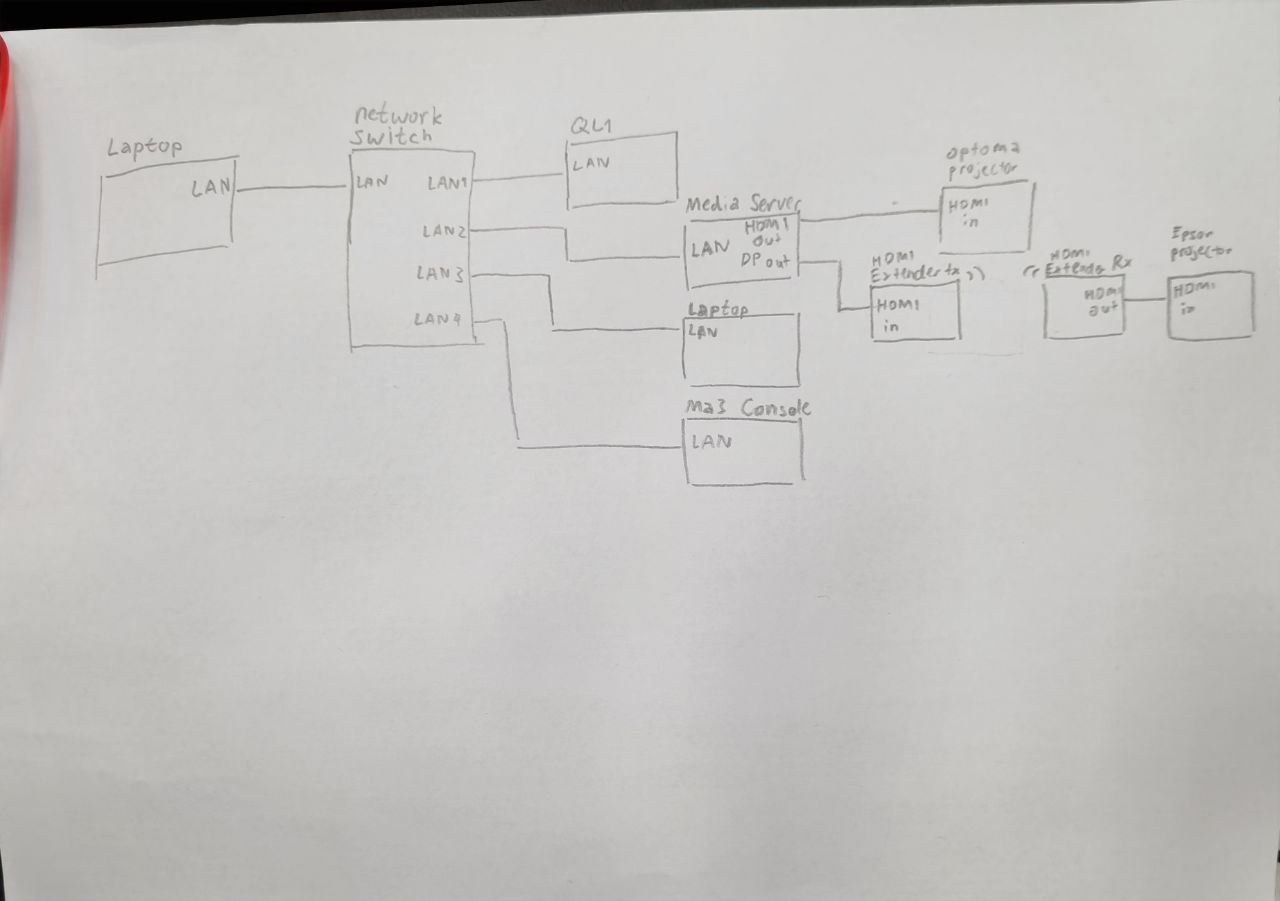 Laptop
LAN
network
switch
LAN
LAN1
LAN2
LAN3
LAN4
QL1
LAN
Media Server
LAN
HDMI
out
DP out
Laptop
LAN
Ma3 Console
LAN
Optoma
projector
HDMI
in
HDMI
Extender tx
HDMI
in
HDMI
Extender Rx
HDMI
out
Epson
projector
HDMI
in